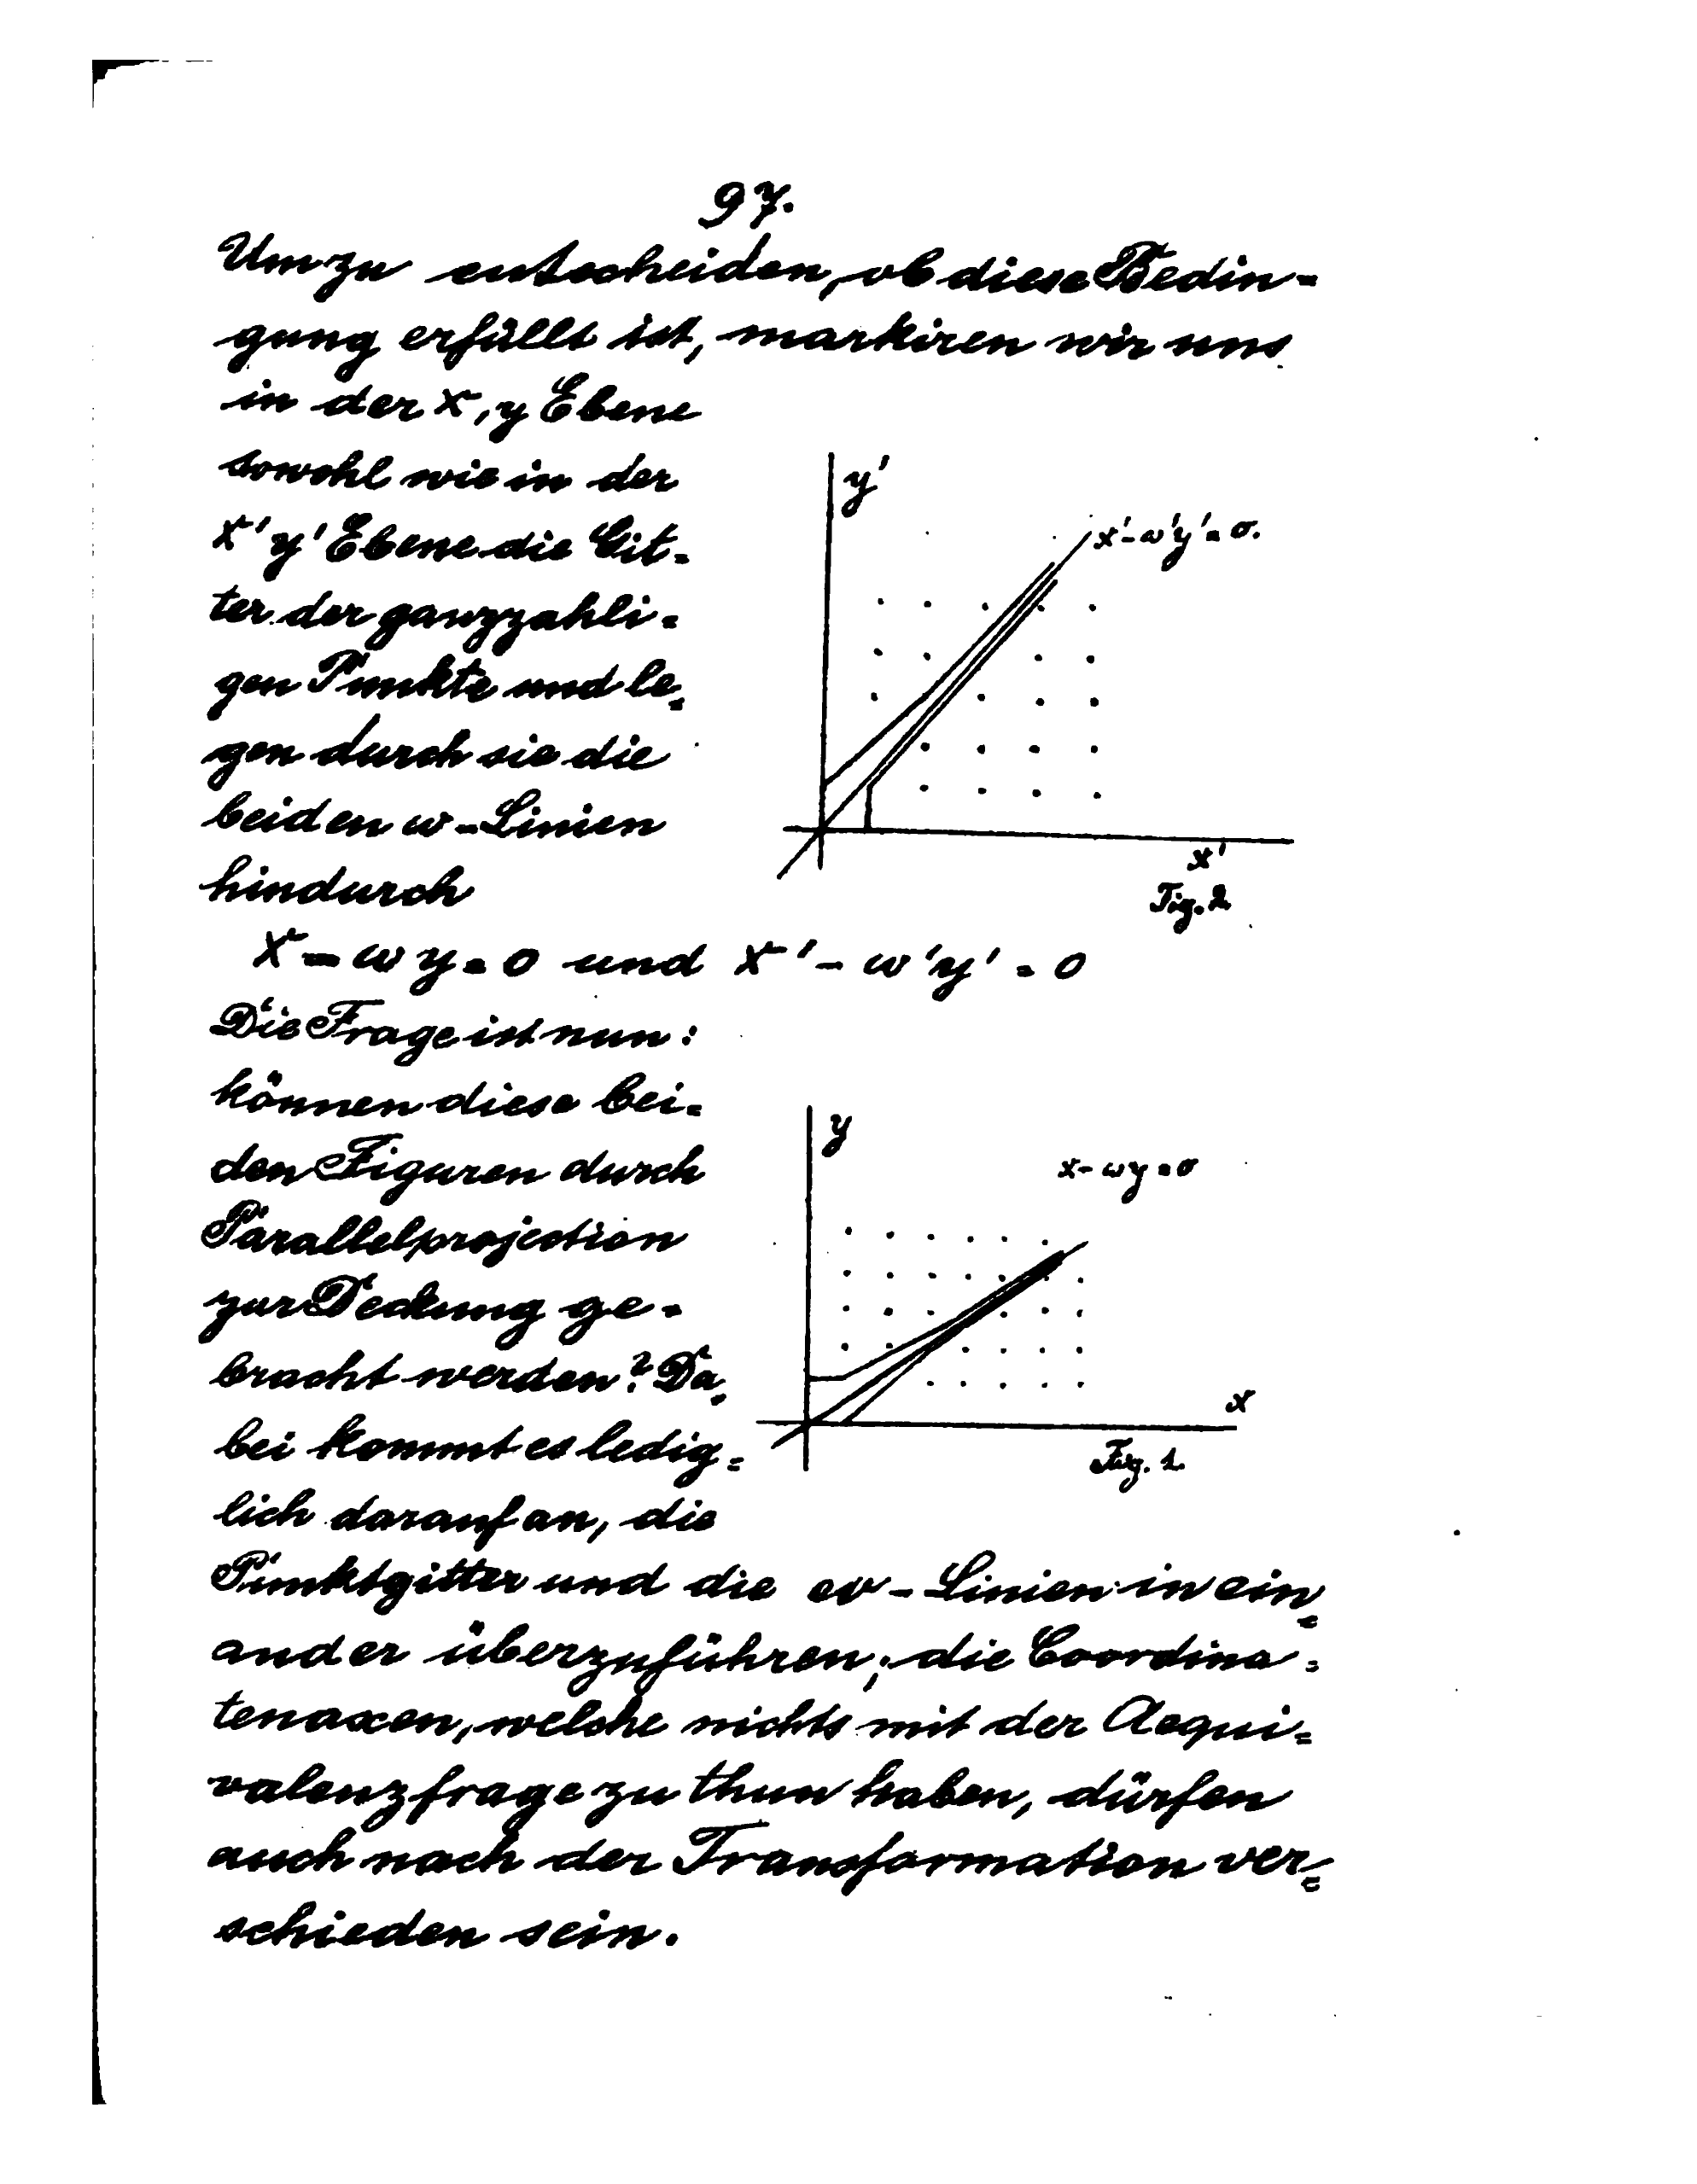 97.
Um zu entscheiden, ob diese Bedin=
gung erfüllt ist, markiren wir uns
in der x, y Ebene
sowohl wie in der
x' y' Ebene die Git=
ter der ganzzahli=
gen Punkte und le=
gen durch sie die
beiden ω-Linien
hindurch
y'
x'-ω'y'=o.
x'
Fig. 2
x-ωy=0 und x'-ω'y'=0
Die Frage ist nun:
können diese bei=
den Figuren durch
Parallelprojection
zur Deckung ge=
bracht werden? Da=
bei kommt es ledig=
lich darauf an, die
y
x-ωy=o
x
Fig. 1.
Punktgitter und die ω-Linien in ein=
ander überzuführen; die Coordina=
tenaxen, welche nichts mit der Aequi=
valenzfrage zu thun haben, dürfen
auch nach der Transformation ver=
schieden sein.